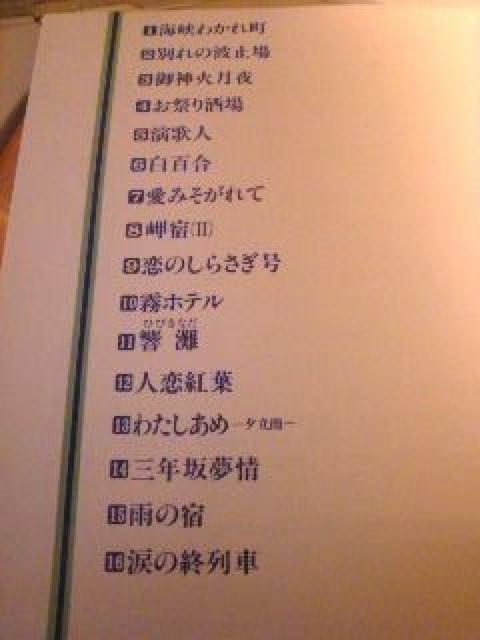 1 海峡わかれ町
2 別れの波止場
3 御神火月夜
4 お祭り酒場
5 演歌人
6 白百合
7 愛みそがれて
8 岬宿(II)
9 恋のしらさぎ号
10 霧ホテル
ひびきなだ
11 響灘
12 人恋紅葉
13 わたしあめ
14 三年坂夢情
15 雨の宿
16 涙の終列車